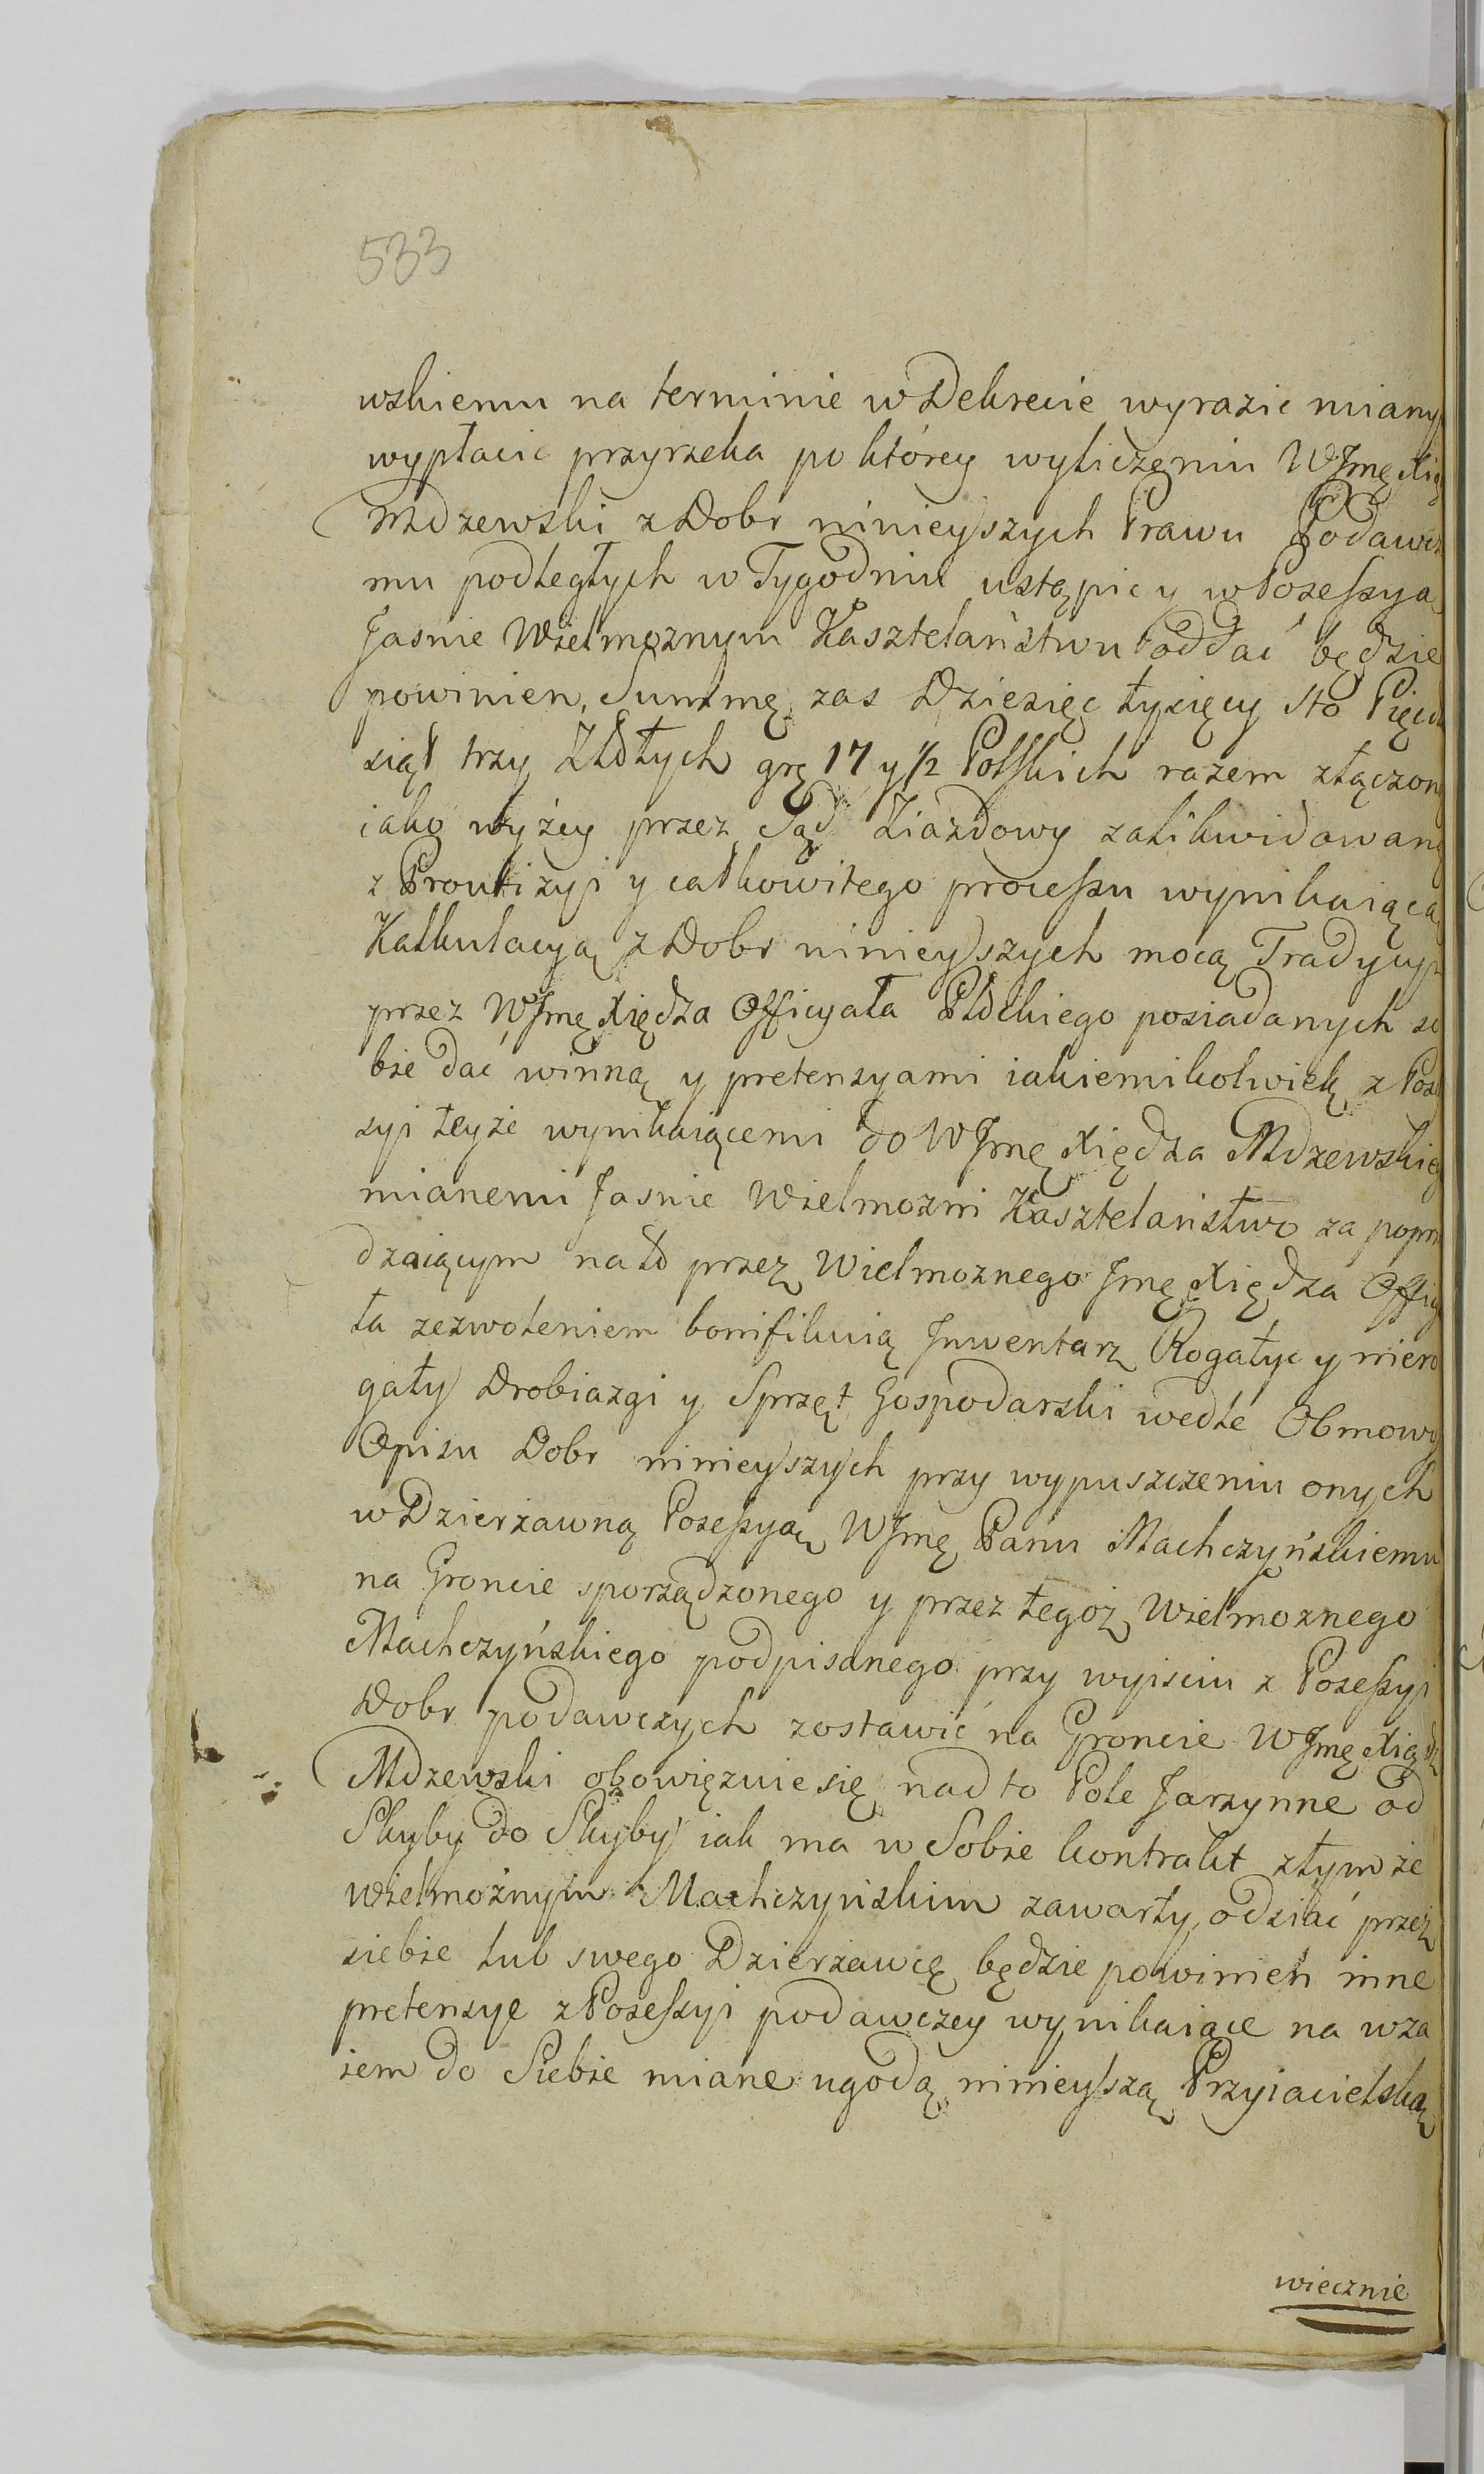 533
wskiemu na terminie w Dekrecie wyrazic miany
wypłacic przyrzeka po którey wyliczeniu WJmę Xią
Mdzewski z Dobr ninieyszych Prawu Podawcz
mu podległych w Tygodniu ustąpic y w Posessyą
Jasnie Wielmoznym Kasztelaństwu oddać będzie
powinien, Summę zas Dziesięc tysięcy sto Pięcd
siąt trzy Złotych grę 17 y 1/2 Polskich razem złączoną
iako wyżey przez Sąd Ziazdowy zalikwidowaną
z Prowizyi y całkowitego processu wynikaiącą
Kalkulacyą z Dobr ninieyszych mocą Tradycyi
przez WJmę Xiędza Officyała Płdckiego posiadanych so
bie dać winną y pretensyami iakiemikolwiek z Pos
syi teyże wynikaiącemi do WJmę Xiędza Mdzewskieg
mianemi Jasnie Wielmozni Kasztelaństwo za poprz
dzaiącym na to przez Wielmoznego Jmę Xiędza Officy
ła zezwoleniem bonifikuią Jnwentarz Rogaty y niero
gaty Drobiazgi y Sprzęt Gospodarski wedle Obmowy
Opisu Dobr ninieyszych przy wypuszczeniu onych
w Dzierzawną Posessyą WJmę Panu Machczyńskiemu
na Groncie sporządzonego y przez tegoż Wielmoznego
Machczyńskiego podpisanego przy wyisciu z Posessyi
Dobr podawczych zostawić na Groncie WJmę Xiądz
Mdzewski obowięzuie się nad to Pole Jarzynne od
Skyby do Skyby iak ma w Sobie kontrakt z tym że
Wielmożnym Machczyńskim zawarty, odsiać przez
siebie lub swego Dzierżawcę będzie powinien inne
pretensye z Posessyi podawczey wynikaiące na wza
iem do Siebie miane ugodą ninieyszą Przyiacielską
wiecznie